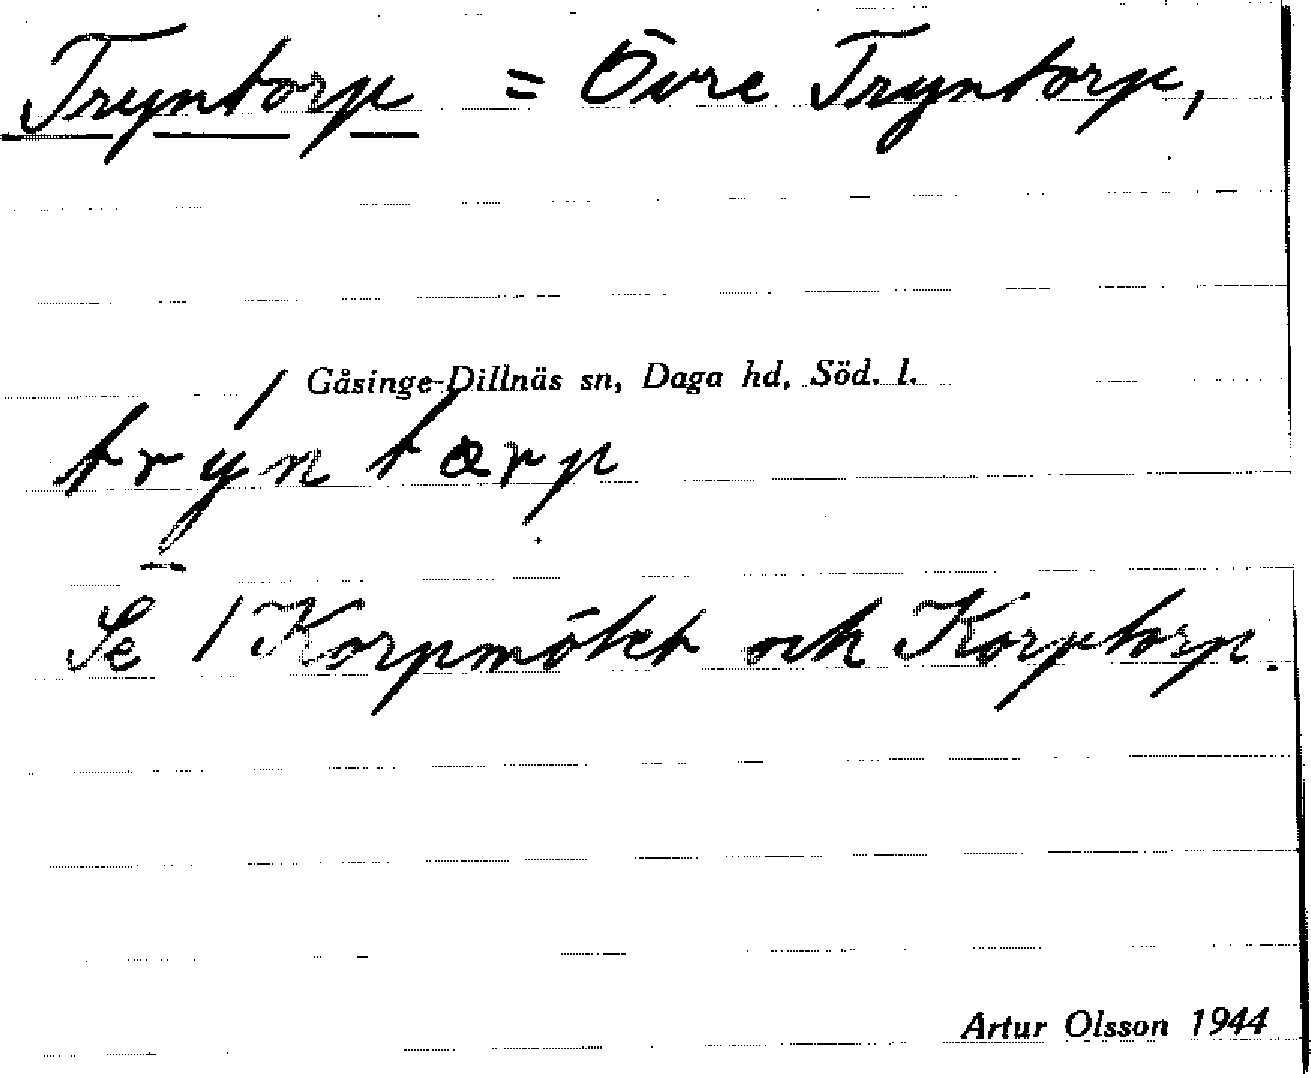 Tryntorp = Övre Tryntorp,
Gåsinge-Dillnäs sn, Daga hd, Söd. l.
trýntarp
Se 1 Korpmötet och Korptorp.
Artur Olsson 1944